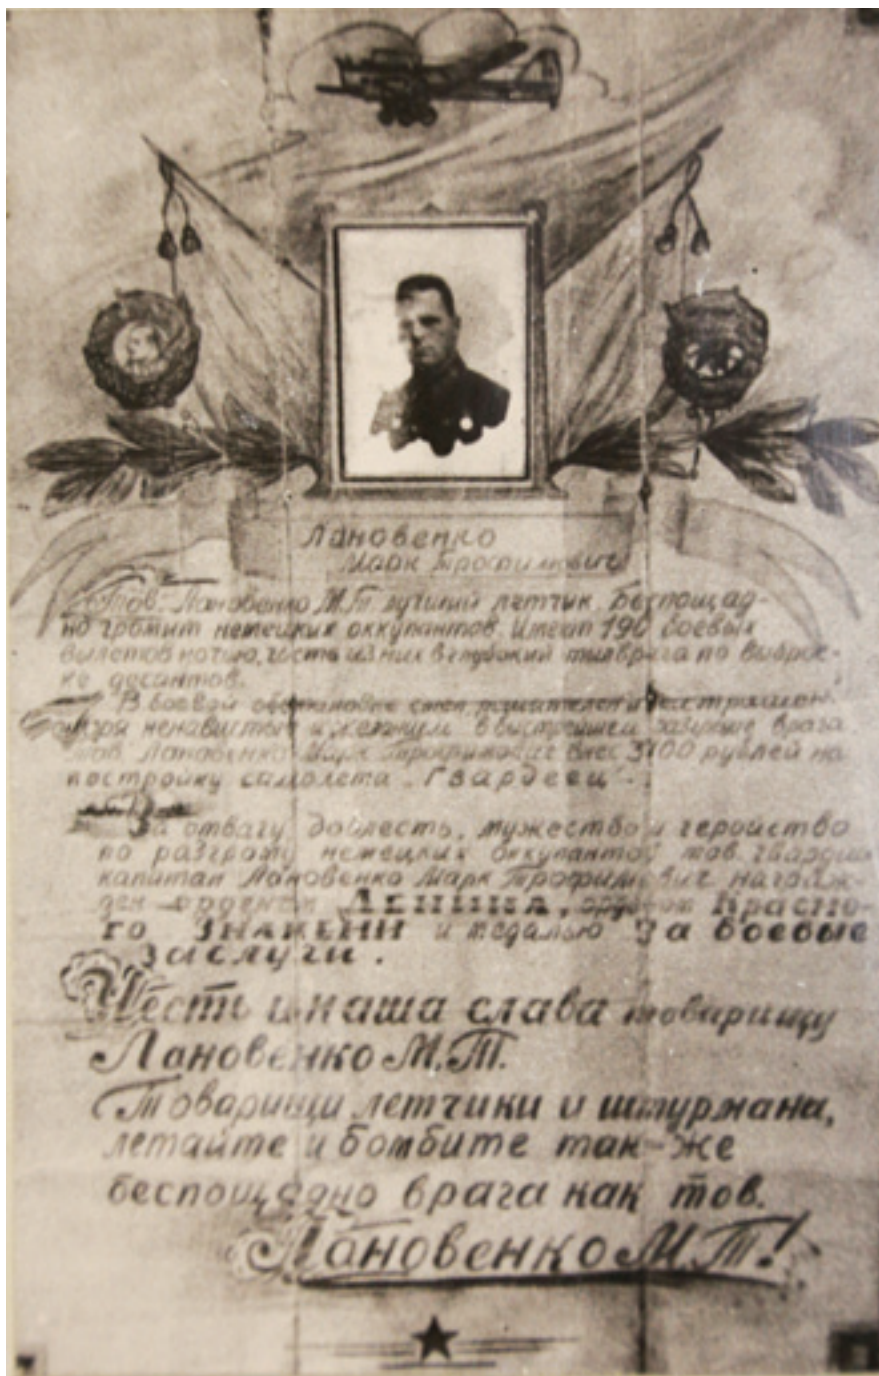 Лановенко
Марк Трофимович
Тов. Лановенко М.Т. лучший летчик. Беспощад-
но громит немецких оккупантов. Имеет 190 боевых
вылетов ночью, из них в глубокий тыл врага по выброс-
ке десантов.
В боевой обстановке смел, решителен и
врага
тов. Лановенко Марк Трофимович внес 3100 рублей на
постройку самолета "Гвардеец".
За отвагу, доблесть, мужество и геройство
по разгрому немецких оккупантов тов. гвардии
капитан Лановенко Марк Трофимович награж-
ден орденом Ленина, орденом Красно-
го Знамени и медалью За боевые
заслуги.
Честь и наша слава товарищу
Лановенко М.Т.
Товарищи летчики и штурмана,
летайте и бомбите так-же
беспощадно врага как тов.
Лановенко М.Т!